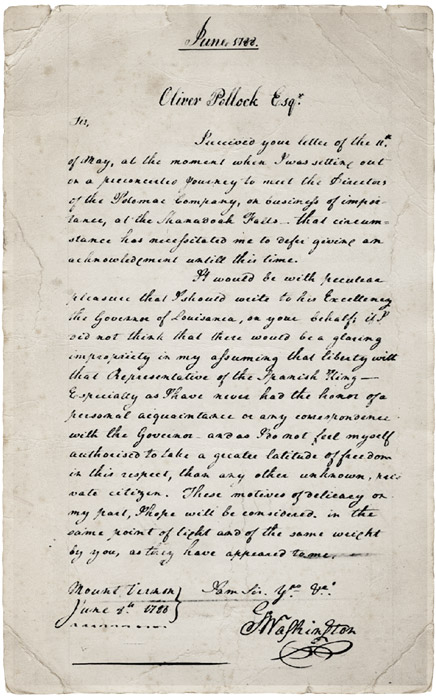 June 1788.
Oliver Pollock Esqr.
Sir,
I received your letter of the 11th
of May, at the moment when I was setting out
on a preconcerted journey to meet the Directors
of the Potomac Company, on business of impor-
tance, at the Shanadoah Falls - that circum-
stance has necessitated me to defer giving an
acknowledgment untill this time.
It would be with peculiar
pleasure that I should write to his Excellency
the Governor of Louisiana, on your behalf; if I
did not think that there would be a glaring
impropriety in my assuming that liberty with
that Representative of the Spanish King—
Especially as I have never had the honor of a
personal acquaintance or any correspondence
with the Governor - and as I do not feel myself
authorised to take a greater latitude of freedom
in this respect, than any other unknown, pri-
vate citizen. These motives of delicacy on
my part, I hope will be considered in the
same point of light and of the same weight
by you, as they have appeared to me.
Mount Vernon} I am Sir. Yrs &ca.
June 4th 1788
GWashington